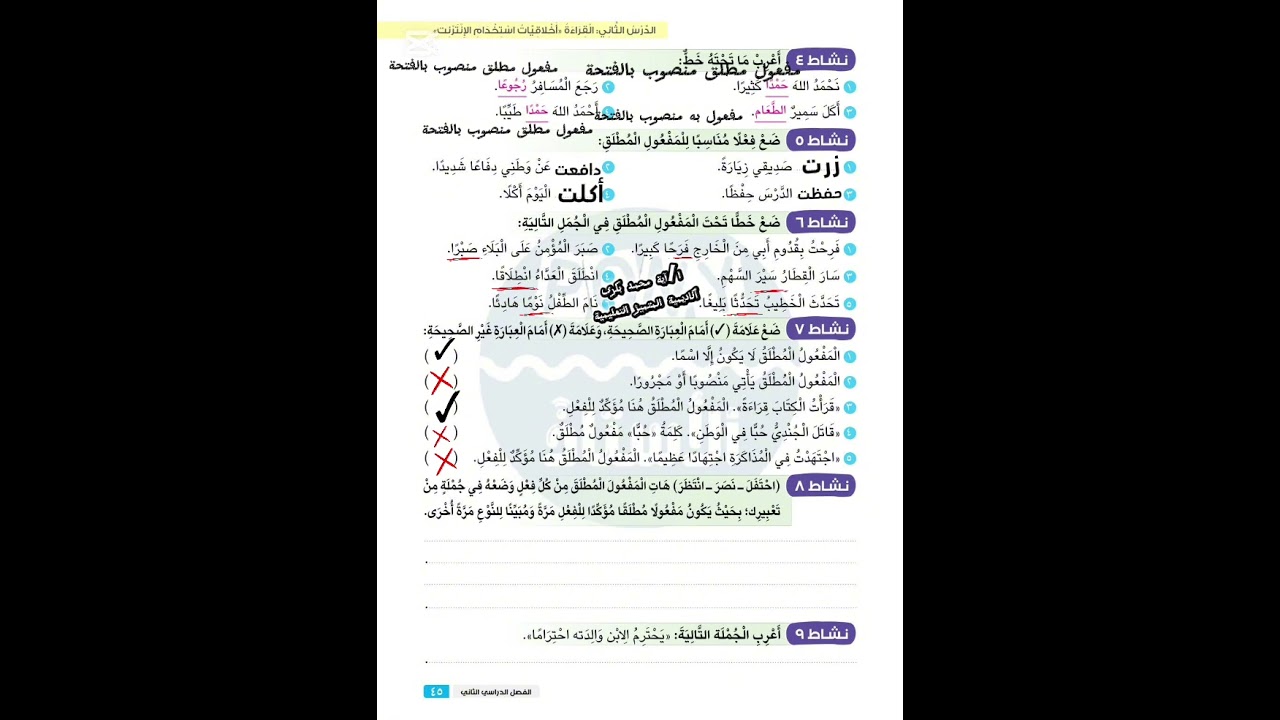 الدَّرْسُ الثَّانِي: الْقِرَاءَةُ «أَخْلَاقِيَّاتُ اسْتِخْدَامِ الْإِنْتَرْنِت»
نشاط ٤ أَعْرِبْ مَا تَحْتَهُ خَطٌّ:
مفعول مطلق منصوب بالفتحة مفعول مطلق منصوب بالفتحة
١ نَحْمَدُ اللهَ حَمْدًا كَثِيرًا. ٢ رَجَعَ الْمُسَافِرُ رُجُوعًا.
٣ أَكَلَ سَمِيرٌ الطَّعَام. مفعول به منصوب بالفتحة ٤ أَحْمَدُ اللهَ حَمْدًا طَيِّبًا.
مفعول مطلق منصوب بالفتحة
نشاط ٥ ضَعْ فِعْلًا مُنَاسِبًا لِلْمَفْعُولِ الْمُطْلَقِ:
١ زرت صَدِيقِي زِيَارَةً. ٢ دافعت عَنْ وَطَنِي دِفَاعًا شَدِيدًا.
٣ حفظت الدَّرْسَ حِفْظًا. ٤ أكلت الْيَوْمَ أَكْلًا.
نشاط ٦ ضَعْ خَطًّا تَحْتَ الْمَفْعُولِ الْمُطْلَقِ فِي الْجُمَلِ التَّالِيَةِ:
١ فَرِحْتُ بِقُدُومِ أَبِي مِنَ الْخَارِجِ فَرَحًا كَبِيرًا. ٢ صَبَرَ الْمُؤْمِنُ عَلَى الْبَلَاءِ صَبْرًا.
٣ سَارَ الْقِطَارُ سَيْرَ السَّهْمِ. ٤ انْطَلَقَ الْعَدَّاءُ انْطِلَاقًا.
٥ تَحَدَّثَ الْخَطِيبُ تَحَدُّثًا بَلِيغًا. نَامَ الطِّفْلُ نَوْمًا هَادِئًا.
نشاط ٧ ضَعْ عَلَامَةَ (✓) أَمَامَ الْعِبَارَةِ الصَّحِيحَةِ، وَعَلَامَةَ (✗) أَمَامَ الْعِبَارَةِ غَيْرِ الصَّحِيحَةِ:
١ الْمَفْعُولُ الْمُطْلَقُ لَا يَكُونُ إِلَّا اسْمًا. (✓)
٢ الْمَفْعُولُ الْمُطْلَقُ يَأْتِي مَنْصُوبًا أَوْ مَجْرُورًا. (✗)
٣ «قَرَأْتُ الْكِتَابَ قِرَاءَةً». الْمَفْعُولُ الْمُطْلَقُ هُنَا مُؤَكِّدٌ لِلْفِعْلِ. (✓)
٤ «قَاتَلَ الْجُنْدِيُّ حُبًّا فِي الْوَطَنِ». كَلِمَةُ «حُبًّا» مَفْعُولٌ مُطْلَقٌ. (✗)
٥ «اجْتَهَدْتُ فِي الْمُذَاكَرَةِ اجْتِهَادًا عَظِيمًا». الْمَفْعُولُ الْمُطْلَقُ هُنَا مُؤَكِّدٌ لِلْفِعْلِ. (✗)
نشاط ٨ (احْتَفَلَ ـ نَصَرَ ـ انْتَظَرَ) هَاتِ الْمَفْعُولَ الْمُطْلَقَ مِنْ كُلِّ فِعْلٍ وَضَعْهُ فِي جُمْلَةٍ مِنْ
تَعْبِيرِكَ؛ بِحَيْثُ يَكُونُ مَفْعُولًا مُطْلَقًا مُؤَكِّدًا لِلْفِعْلِ مَرَّةً وَمُبَيِّنًا لِلنَّوْعِ مَرَّةً أُخْرَى.
نشاط ٩ أَعْرِبِ الْجُمْلَةَ التَّالِيَةَ: «يَحْتَرِمُ الِابْنِ وَالِدَتَه احْتِرَامًا».
الفصل الدراسي الثاني ٤٥